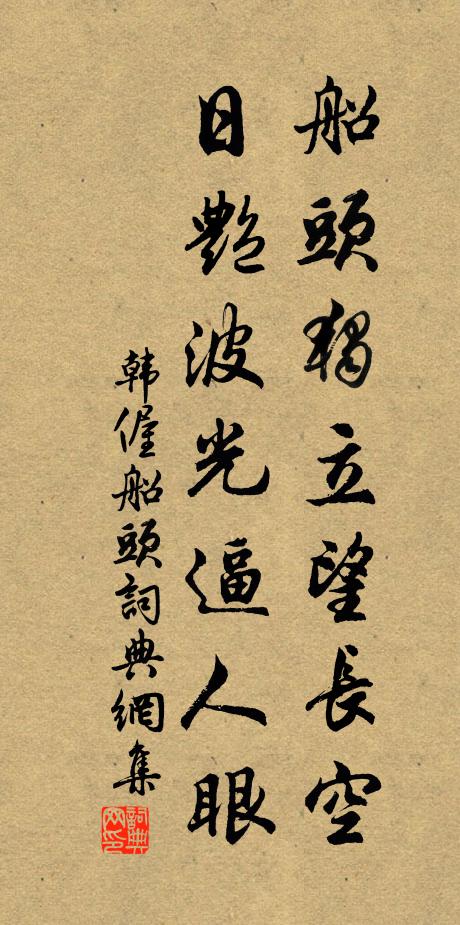 船頭獨立望長空
日艷波光逼人眼
韩偓船頭詞典網集
詞典网印